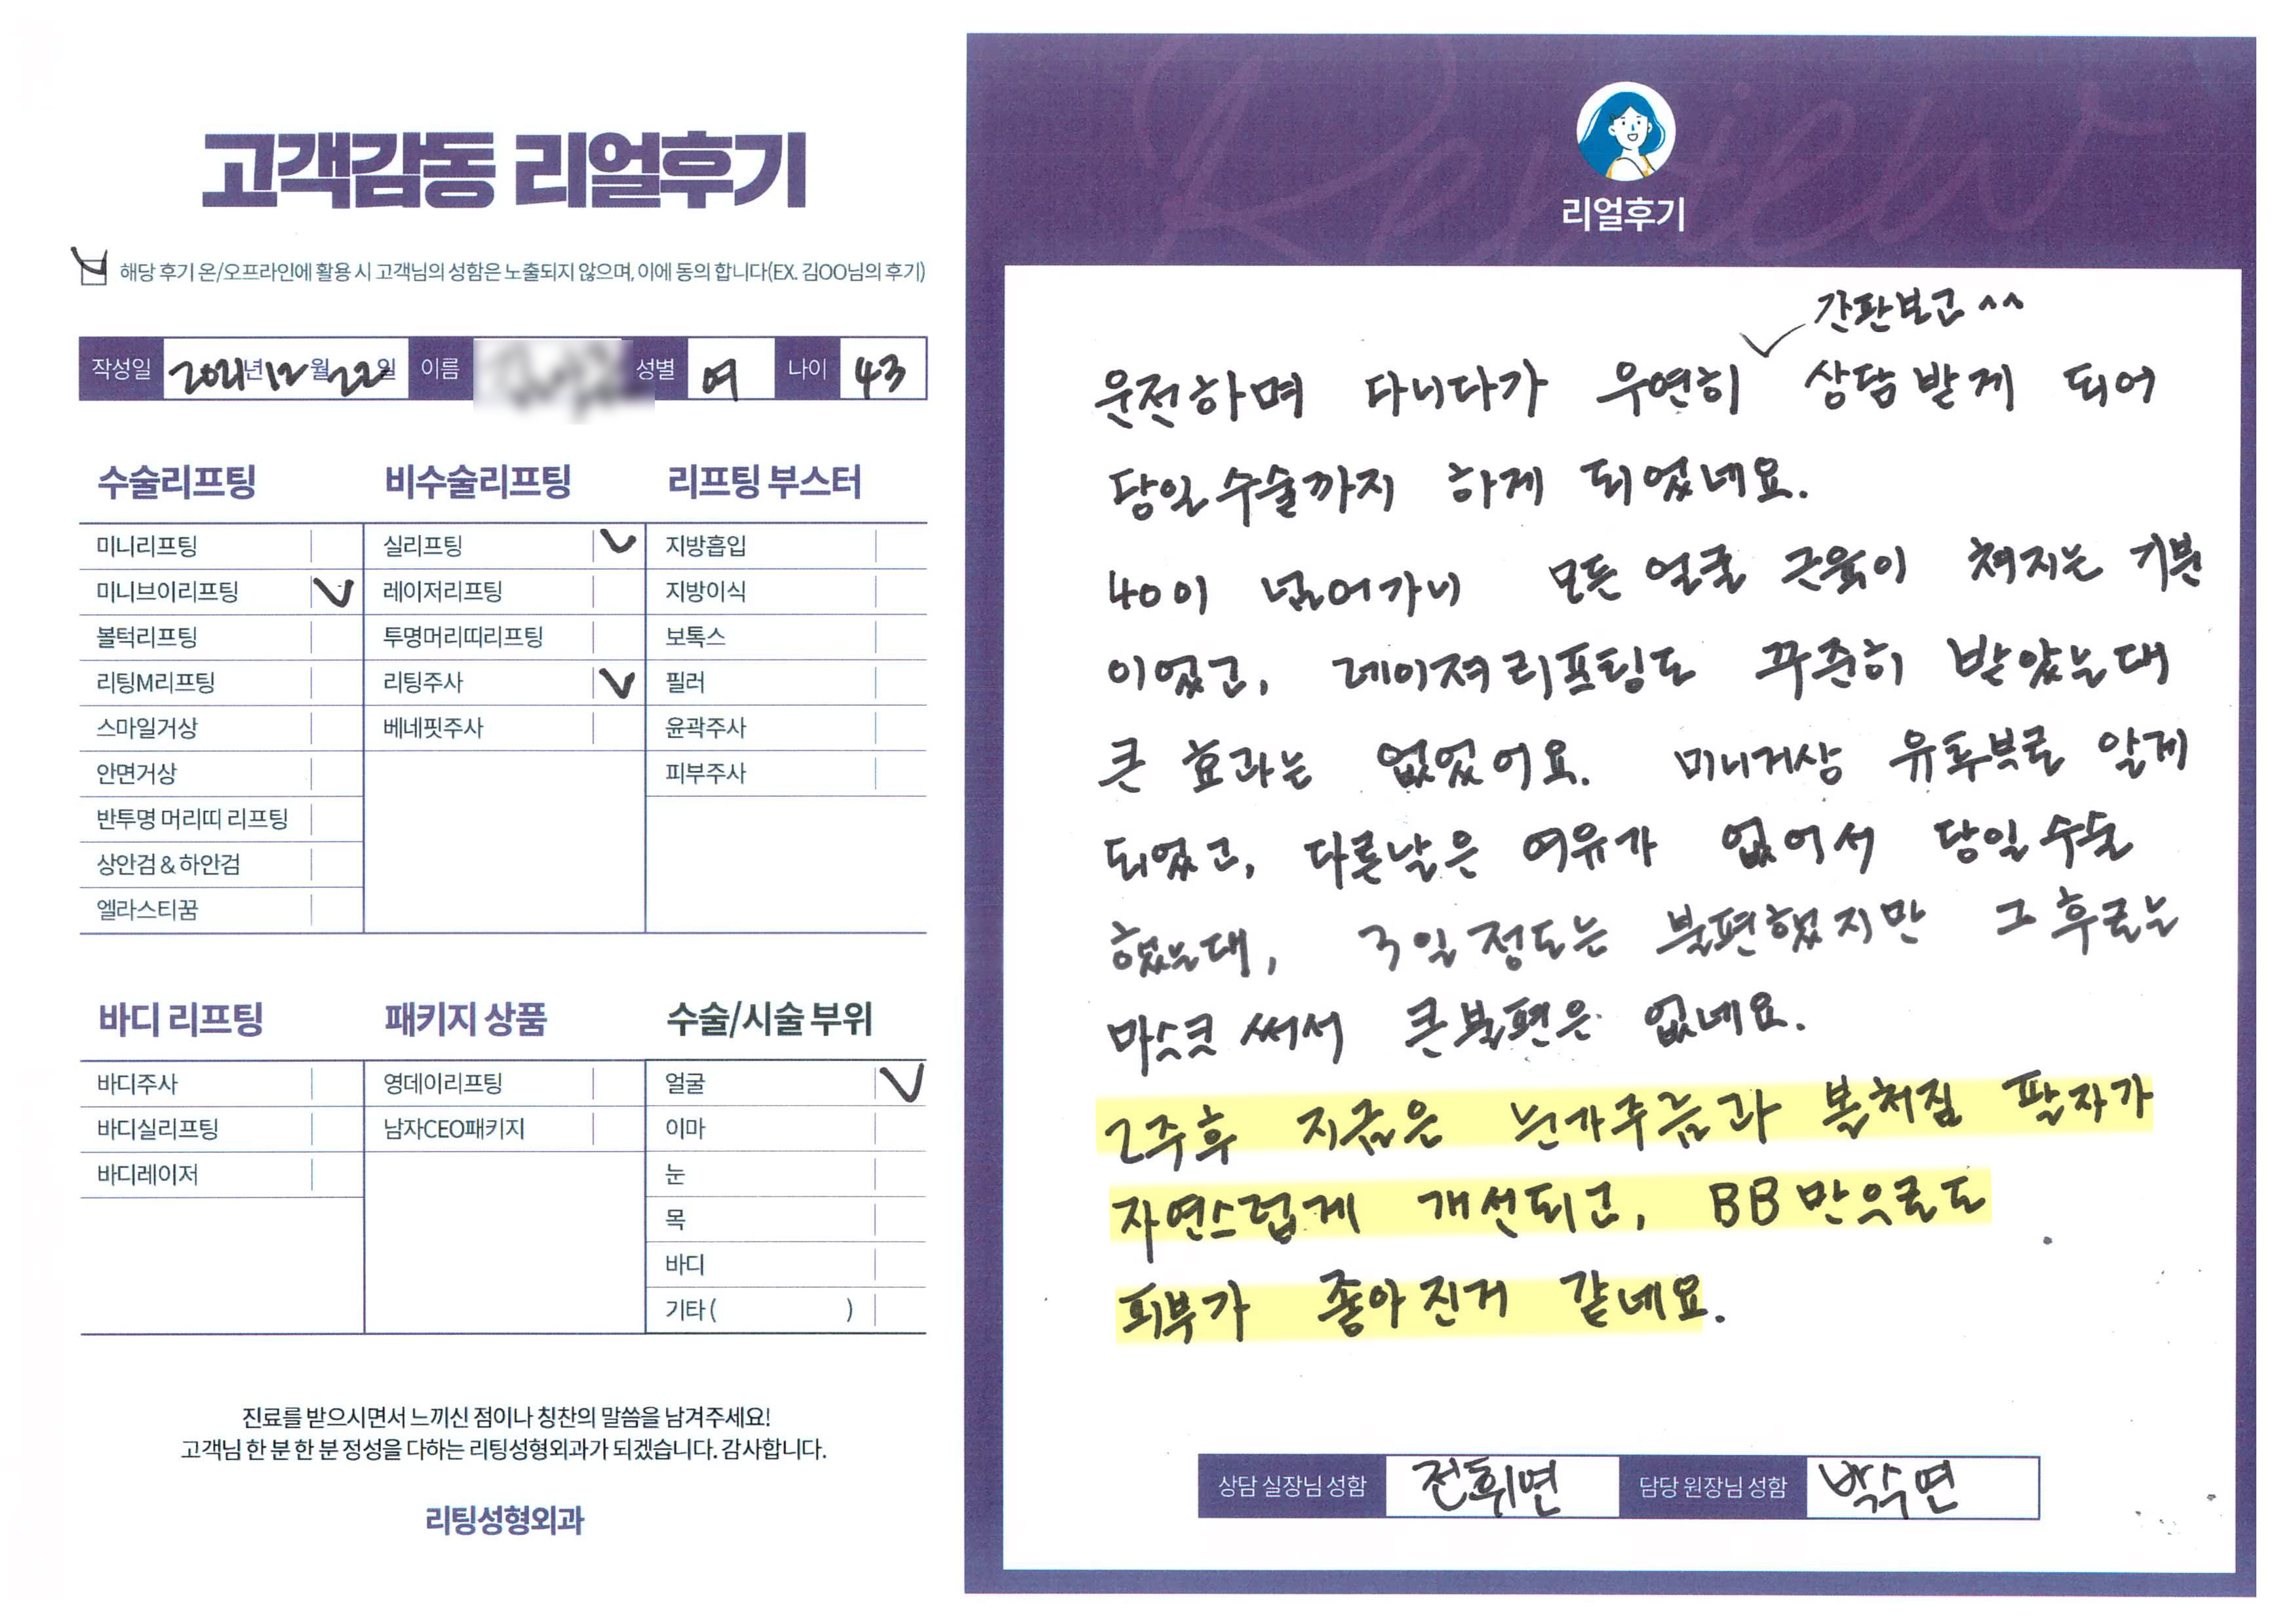 고객감동 리얼후기
해당 후기 온/오프라인에 활용 시 고객님의 성함은 노출되지 않으며, 이에 동의 합니다(EX. 김OO님의 후기)
작성일 2021년 12월 22일 이름 성별 여 나이 43
수술리프팅 비수술리프팅 리프팅 부스터
미니리프팅 실리프팅 지방흡입
미니브이리프팅 레이저리프팅 지방이식
볼턱리프팅 투명머리띠리프팅 보톡스
리팅M리프팅 리팅주사 필러
스마일거상 베네핏주사 윤곽주사
안면거상 피부주사
반투명 머리띠 리프팅
상안검 & 하안검
엘라스티꿈
바디 리프팅 패키지 상품 수술/시술 부위
바디주사 영데이리프팅 얼굴
바디실리프팅 남자CEO패키지 이마
바디레이저 눈
목
바디
기타 ( )
진료를 받으시면서 느끼신 점이나 칭찬의 말씀을 남겨주세요!
고객님 한 분 한 분 정성을 다하는 리팅성형외과가 되겠습니다. 감사합니다.
리팅성형외과
Review
리얼후기
간판보고 ^^
운전하며 다니다가 우연히 상담받게 되어
당일수술까지 하게 되었네요.
40이 넘어가니 모든 얼굴 근육이 쳐지는 기분
이었고, 레이져리프팅도 꾸준히 받았는대
큰 효과는 없었어요. 미니거상 유튜브로 알게
되었고, 다른날은 여유가 없어서 당일수술
했는대, 3일정도는 불편했지만 그 후로는
마스크 써서 큰불편은 없네요.
2주후 지금은 눈가주름과 볼처짐 팔자가
자연스럽게 개선되고, BB만으로도
피부가 좋아진거 같네요.
상담 실장님 성함 전휘면 담당 원장님 성함 박수연